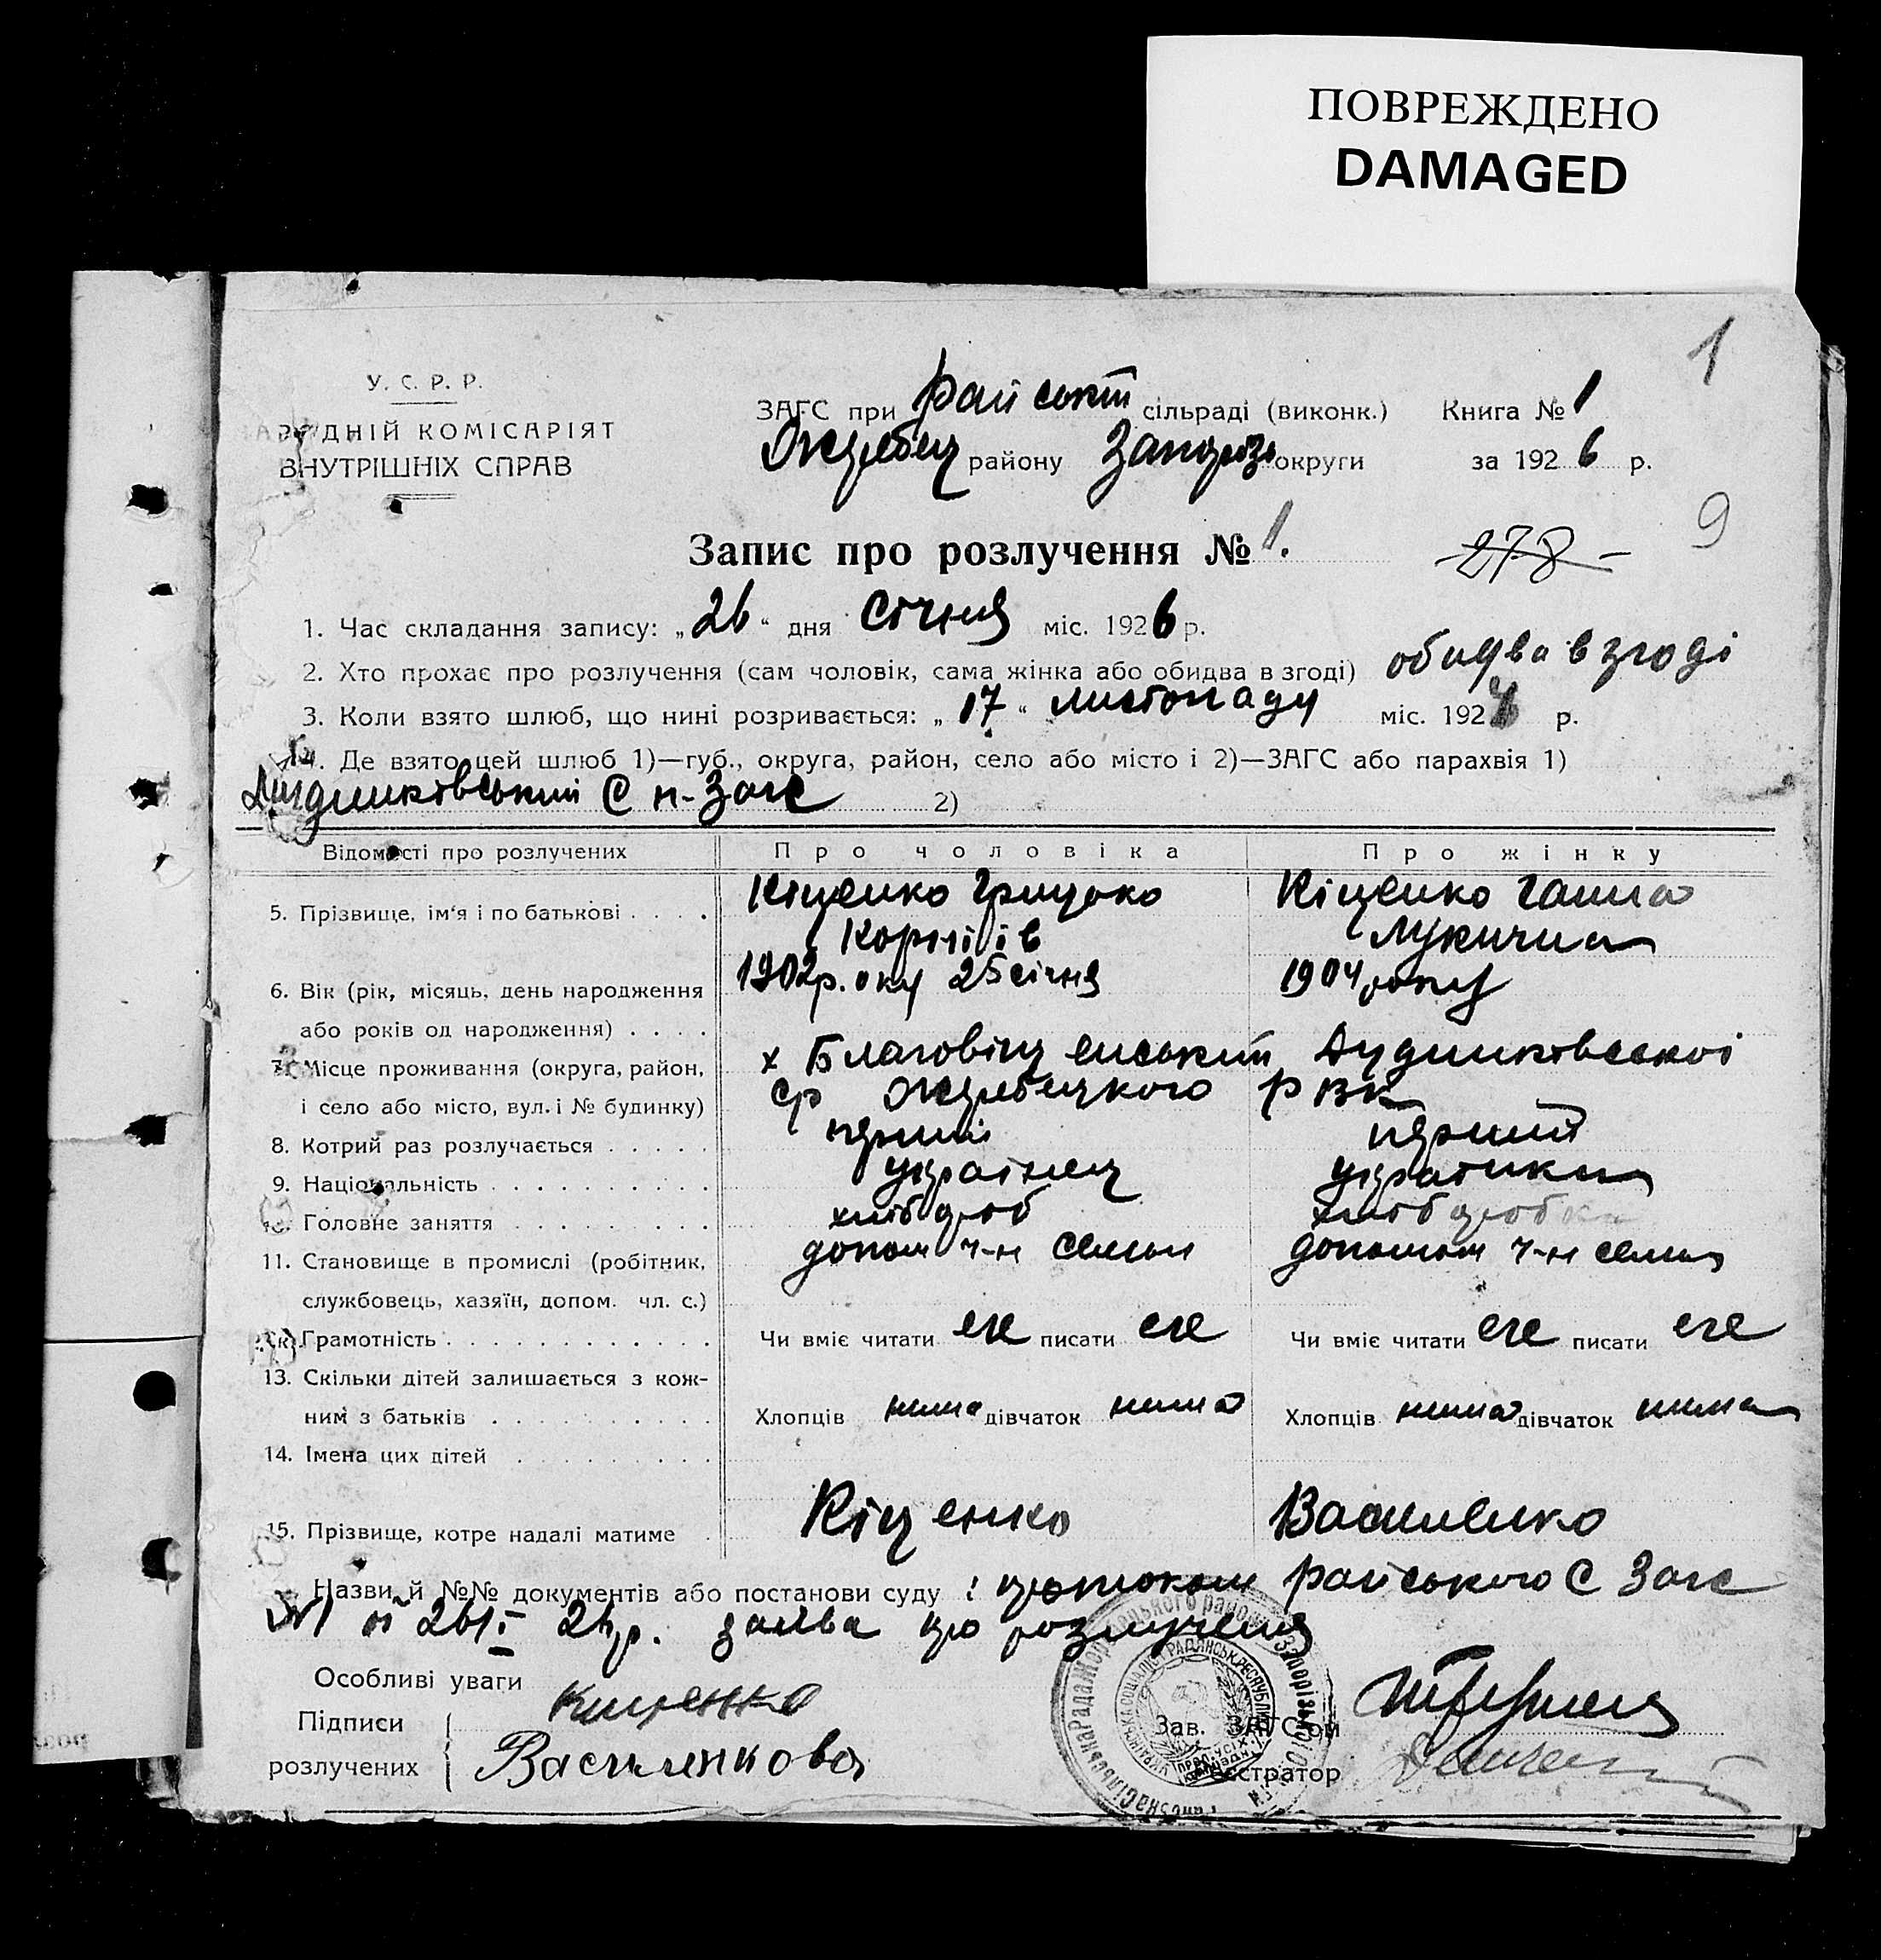 ПОВРЕЖДЕНО
DAMAGED
1
У. С. Р. Р.
НАРОДНІЙ КОМІСАРІЯТ
ВНУТРІШНІХ СПРАВ
ЗАГС при Райській сільраді (виконк.) Книга № 1
Жеребец району Запоріз округи за 1926 р.
9
Запис про розлучення № 1.
278
1. Час складання запису: „26“ дня Січня міс. 1926 р.
2. Хто прохає про розлучення (сам чоловік, сама жінка або обидва в згоді) обидва в згоді
3. Коли взято шлюб, що нині розривається: „17“ листопаду міс. 1924 р.
4. Де взято цей шлюб 1)—губ., округа, район, село або місто і 2)—ЗАГС або парахвія 1)
С н-Загс 2)
Відомості про розлучених Про чоловіка Про жінку
5. Прізвище, ім'я і по батькові . . . . Кіценко Грицько Кіценко Ганна
Корніїв Лукична
6. Вік (рік, місяць, день народження 1902р.оку 25 січня 1904 року
або років од народження) . . . .
7. Місце проживання (округа, район, х Благовіщенський Дудниківської
і село або місто, вул. і № будинку) ср Жеребецкого РВК
8. Котрий раз розлучається . . . . . перший перший
9. Національність . . . . . . . . . . українец українка
10. Головне заняття . . . . . . . . . хлібороб хліборобка
11. Становище в промислі (робітник, допом ч-н семьи допомом ч-н семьи
службовець, хазяїн, допом. чл. с.)
Грамотність . . . . . . . . . . . . Чи вміє читати еге писати еге Чи вміє читати еге писати еге
13. Скільки дітей залишається з кож-
ним з батьків . . . . . . . . . . Хлопців нима дівчаток нима Хлопців нима дівчаток нима
14. Імена цих дітей . . . . . . . . .
15. Прізвище, котре надалі матиме . Кіценко Василенко
Назви й №№ документів або постанови суду: протокол Райського С Загс
№1 от 26/I 26р. заява про розлучення
Особливі уваги
Підписи Киценко
розлучених Василенкова
Зав. ЗАГС'ом
Реєстратор